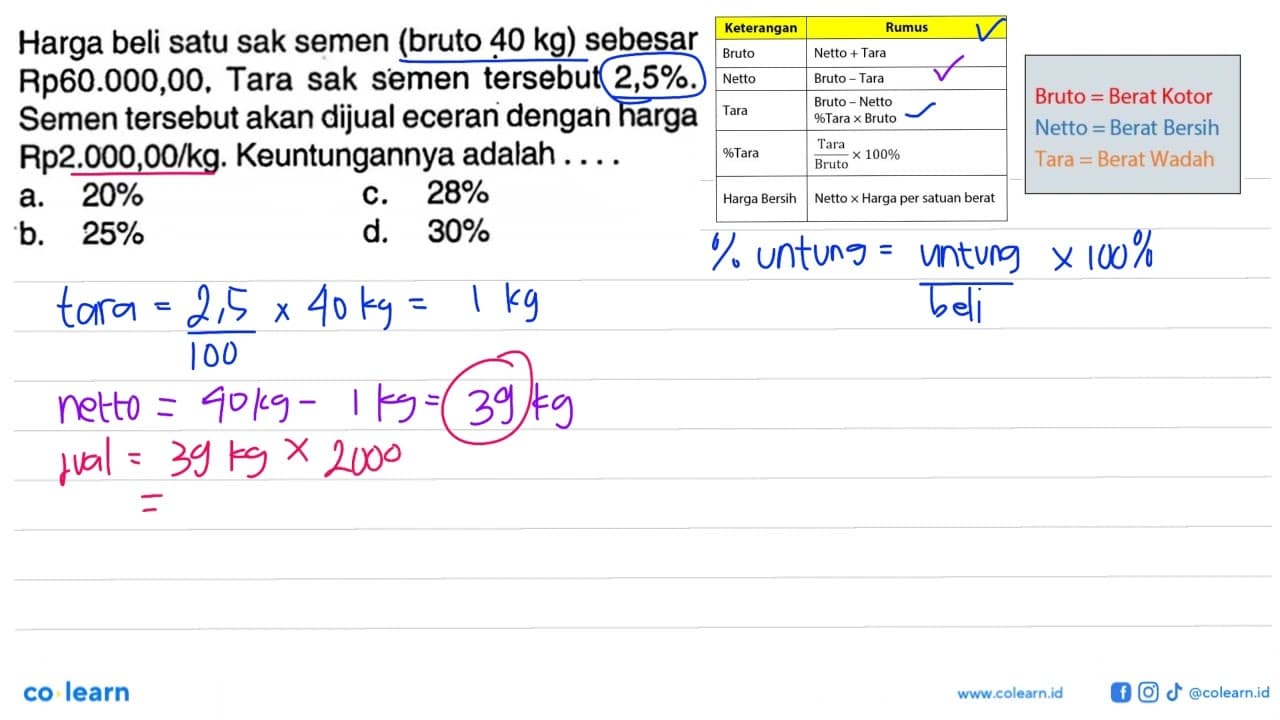 Harga beli satu sak semen (bruto 40 kg) sebesar
Rp60.000,00. Tara sak semen tersebut 2,5%.
Semen tersebut akan dijual eceran dengan harga
Rp2.000,00/kg. Keuntungannya adalah . . . .
a. 20% c. 28%
b. 25% d. 30%
Keterangan Rumus
Bruto Netto + Tara
Netto Bruto – Tara
Tara Bruto – Netto
%Tara × Bruto
%Tara Tara/Bruto × 100%
Harga Bersih Netto × Harga per satuan berat
Bruto = Berat Kotor
Netto = Berat Bersih
Tara = Berat Wadah
% untung = untung/beli × 100%
tara = 2,5/100 × 40 kg = 1 kg
netto = 40 kg - 1 kg = 39 kg
jual = 39 kg × 2000
=
co learn
www.colearn.id
@colearn.id